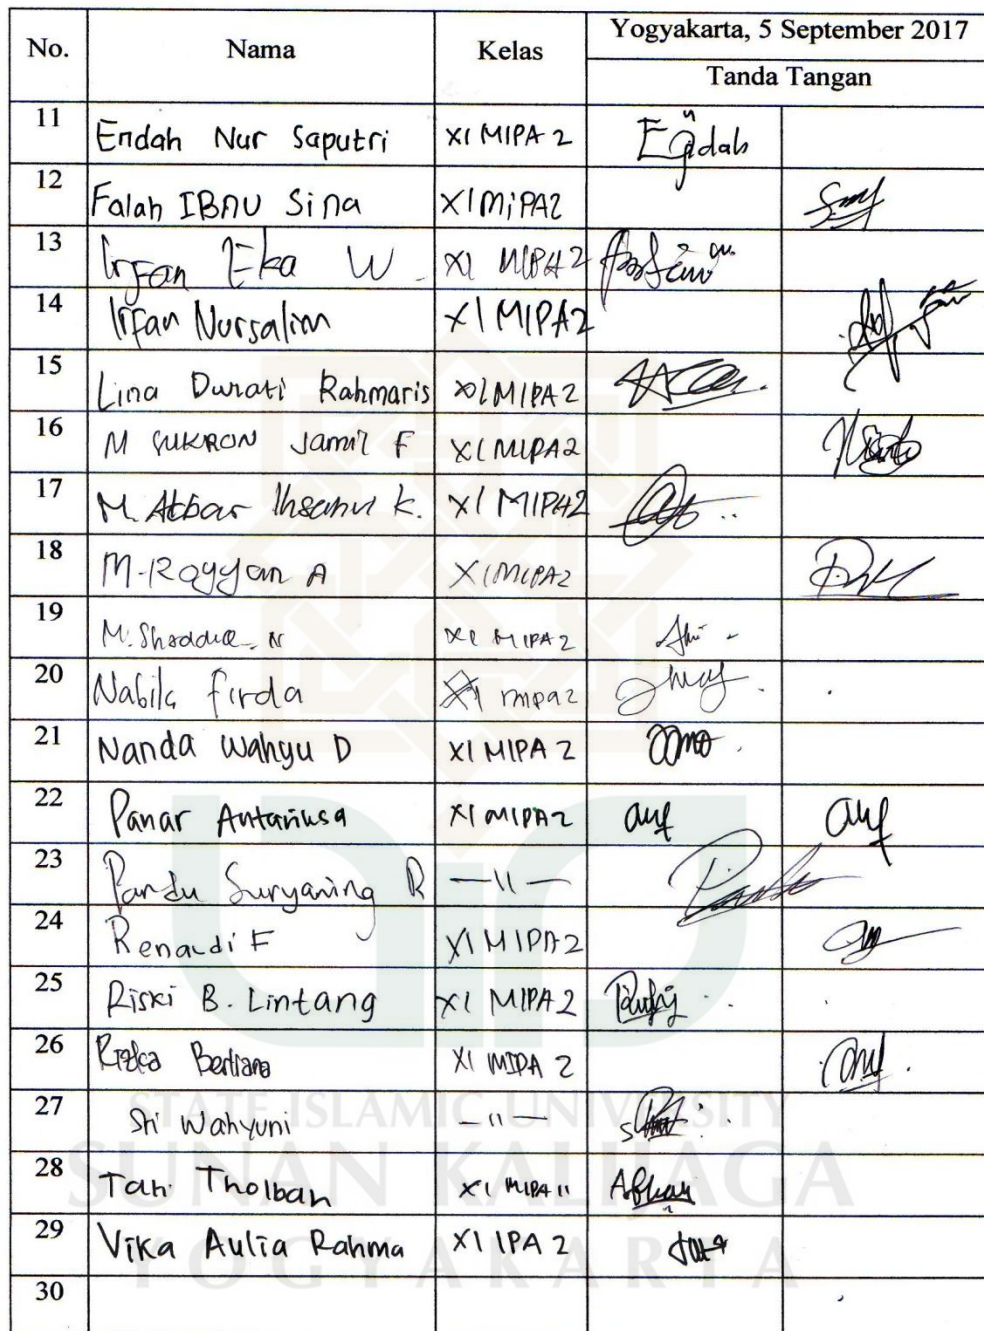 No. Nama Kelas Yogyakarta, 5 September 2017
Tanda Tangan
11 Endah Nur Saputri XI MIPA 2 Endah
12 Falah IBNU Sina XI MiPA2
13 Irfan Eka W. XI MIPA 2
14 Irfan Nursalim XI MIPA2
15 Lina Durati Rahmaris XI MIPA 2
16 M SUKRON Jamil F XI MIPA2
17 M. Akbar Ihsanul K. XI MIPA2
18 M. Rayyan A XI MIPA2
19 M. Shoddiq N XI MIPA 2
20 Nabila Firda XI mipa2
21 Nanda Wahyu D XI MIPA 2
22 Panar Antariksa XI MIPA2
23 Pandu Suryaning R —11—
24 Renaldi F XI MIPA2
25 Riski B. Lintang XI MIPA 2
26 Rizka Berliana XI MIPA 2
27 Sri Wahyuni —11—
28 Tan Tholbah XI MIPA 11
29 Vika Aulia Rahma XI IPA 2
30
STATE ISLAMIC UNIVERSITY
SUNAN KALIJAGA
YOGYAKARTA